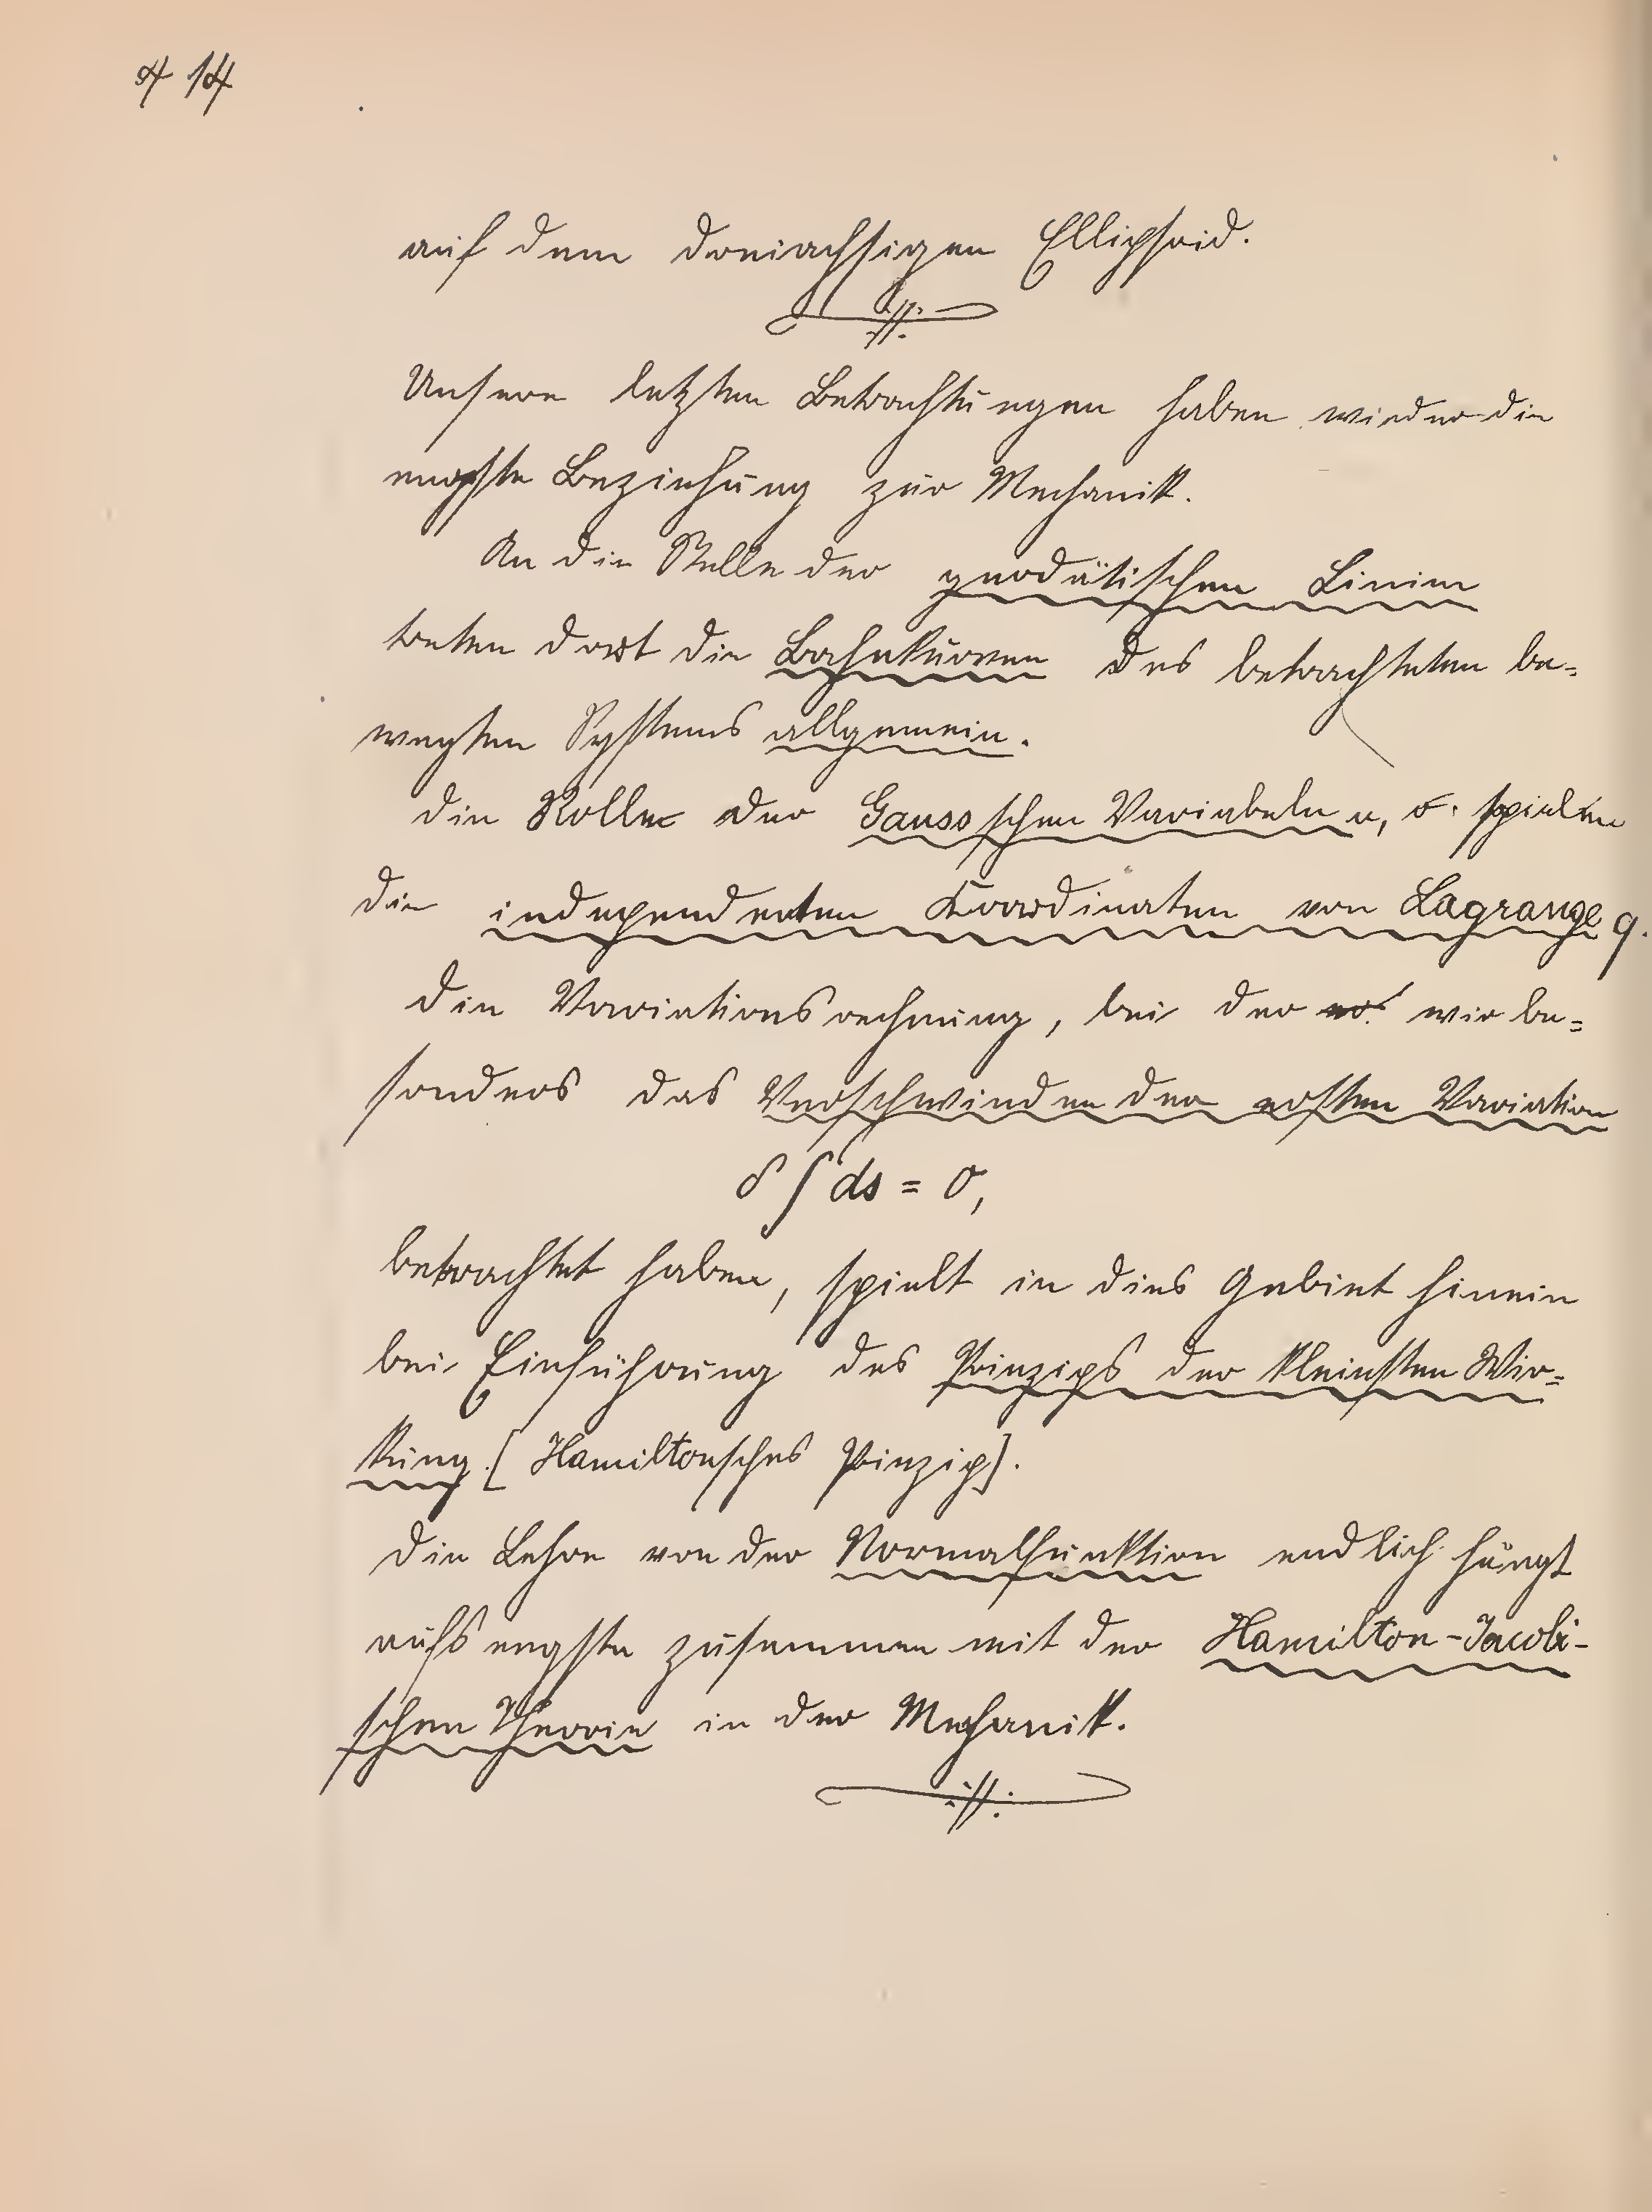 14
auf dem dreiachsigen Ellipsoid.
Unsere letzten Betrachtungen haben wieder die
engste Beziehung zur Mechanik.
An die Stelle der geodätischen Linien
treten dort die Bahnkurven des betrachteten be=
wegten Systems allgemein.
Die Rolle der Gaussschen Variabeln u, v. spielen
die independenten Koordinaten von Lagrange q.
Die Variationsrechnung, bei der wir be=
sonders das Verschwinden der ersten Variation
δ∫ds = 0,
betrachtet haben, spielt in dies Gebiet hinein
bei Einführung des Prinzips der kleinsten Wir=
kung. [Hamiltonsches Prinzip].
Die Lehre von der Normalfunktion endlich hängt
aufs engste zusammen mit der Hamilton-Jacobi-
schen Theorie in der Mechanik.